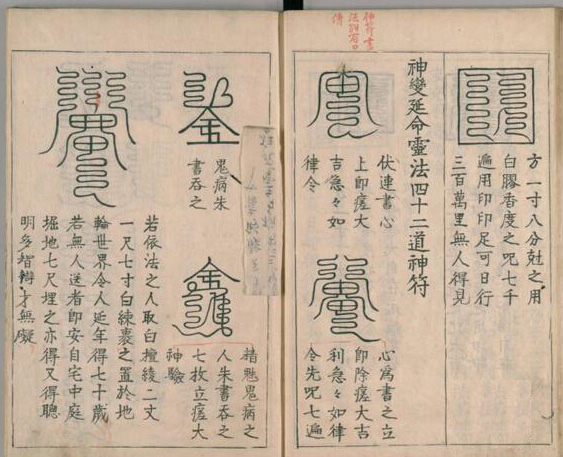 方一寸八分尅之用
白膠香度之呪七千
遍用印印足可日行
三百萬里無人得見
神變延命靈法四十二道神符
伏連書心
上即瘥大
吉急々如
律令
心為書之立
即除瘥大吉
利急々如律
令先呪七遍
鬼病朱
書吞之
精魅鬼病之
人朱書吞之
七枚立瘥大
神驗
若依法之人取白檀綾二丈
一尺七寸白練裹之置於地
輪世界令人延年得七十歲
若無人送者即安自宅中庭
掘地七尺埋之亦得又得聰
明多智辯才無礙